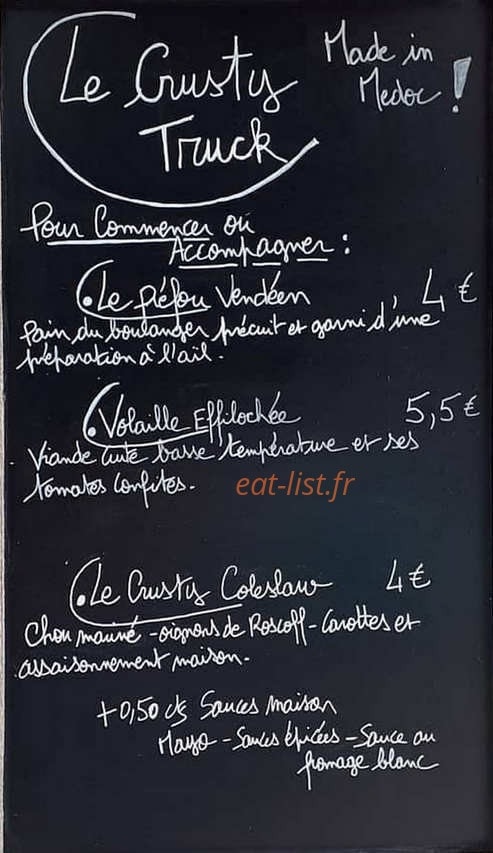 Le Crusty
Truck
Made in
Medoc !
Pour Commencer ou
Accompagner :
• Le préfou Vendéen 4 €
Pain du boulanger précuit et garni d'une
préparation à l'ail.
• Volaille Effilochée 5,5 €
Viande cuite basse température et ses
tomates confites.
eat-list.fr
• Le Crusty Coleslaw 4 €
Chou mariné - oignons de Roscoff - Carottes et
assaisonnement maison.
+ 0,50 cts Sauces maison
Mayo - Sauces épicées - Sauce au
fromage blanc